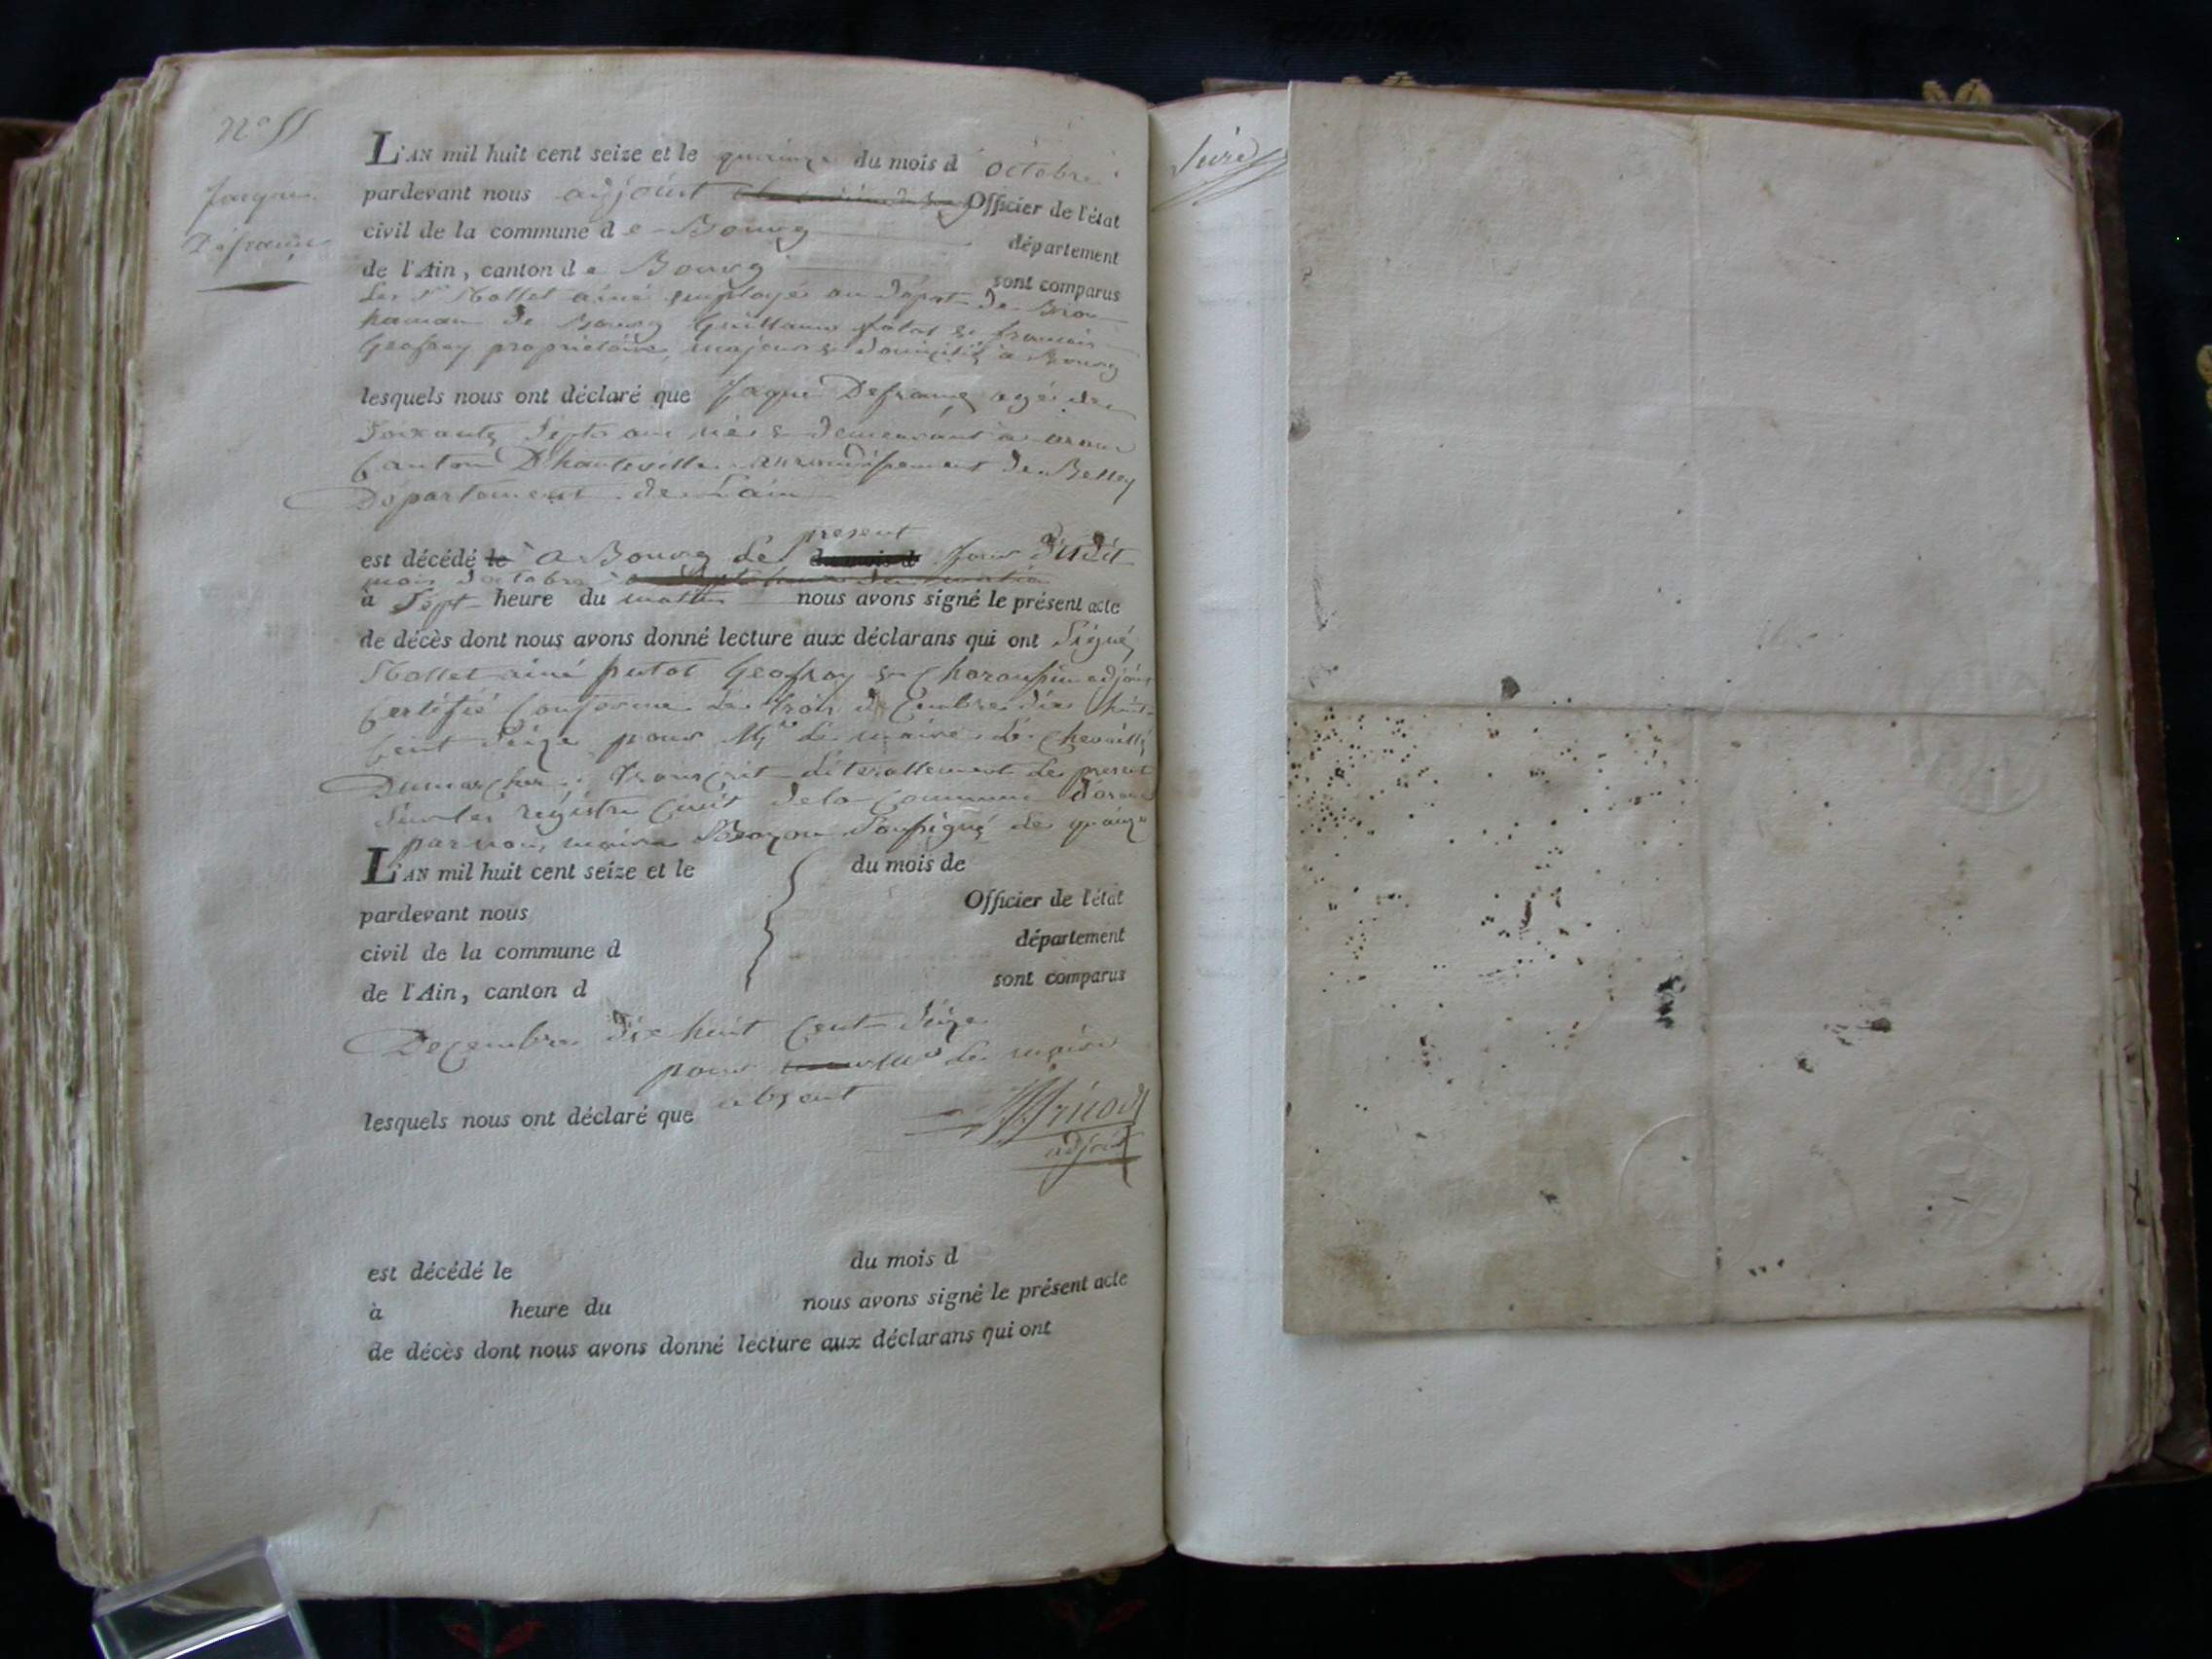 N° 11
Jacques
Defranç
L'AN mil huit cent seize et le quinze du mois d'octobre
pardevant nous adjoint Officier de l'état
civil de la commune de Bourg département
de l'Ain, canton de Bourg sont comparus
Les Sr Mollet ainé employé au dépot de
de Bourg Guillaume putot & francois
Geofroy propriétaire, majeurs & domiciliés a Bourg
lesquels nous ont déclaré que Jaque Defranç agé de
Soixante Septs ans né & demeurant a
Canton D'hauteville arrondissement de Belley
Departement de L'ain
present
est décédé le a Bourg Le du mois d Jour dudit
mois d'octobre a Sept heure du matin
à Sept heure du matin nous avons signé le présent acte
de décès dont nous avons donné lecture aux déclarans qui ont Signé
Mollet ainé putot Geofroy & adjoint
Certifié Conforme Le trois decembre dix huit
Cent Seize pour Mr Le maire Le
Transcrit Literallement Le present
Sur les registre Civil de la Commune
par nous maire Soussigné Le quinze
L'AN mil huit cent seize et le du mois de
pardevant nous Officier de l'état
civil de la commune d département
de l'Ain, canton d sont comparus
Decembre dix huit Cent Seize
pour Mr Le maire
absent
lesquels nous ont déclaré que
adjoint
est décédé le du mois d
à heure du nous avons signé le présent acte
de décès dont nous avons donné lecture aux déclarans qui ont